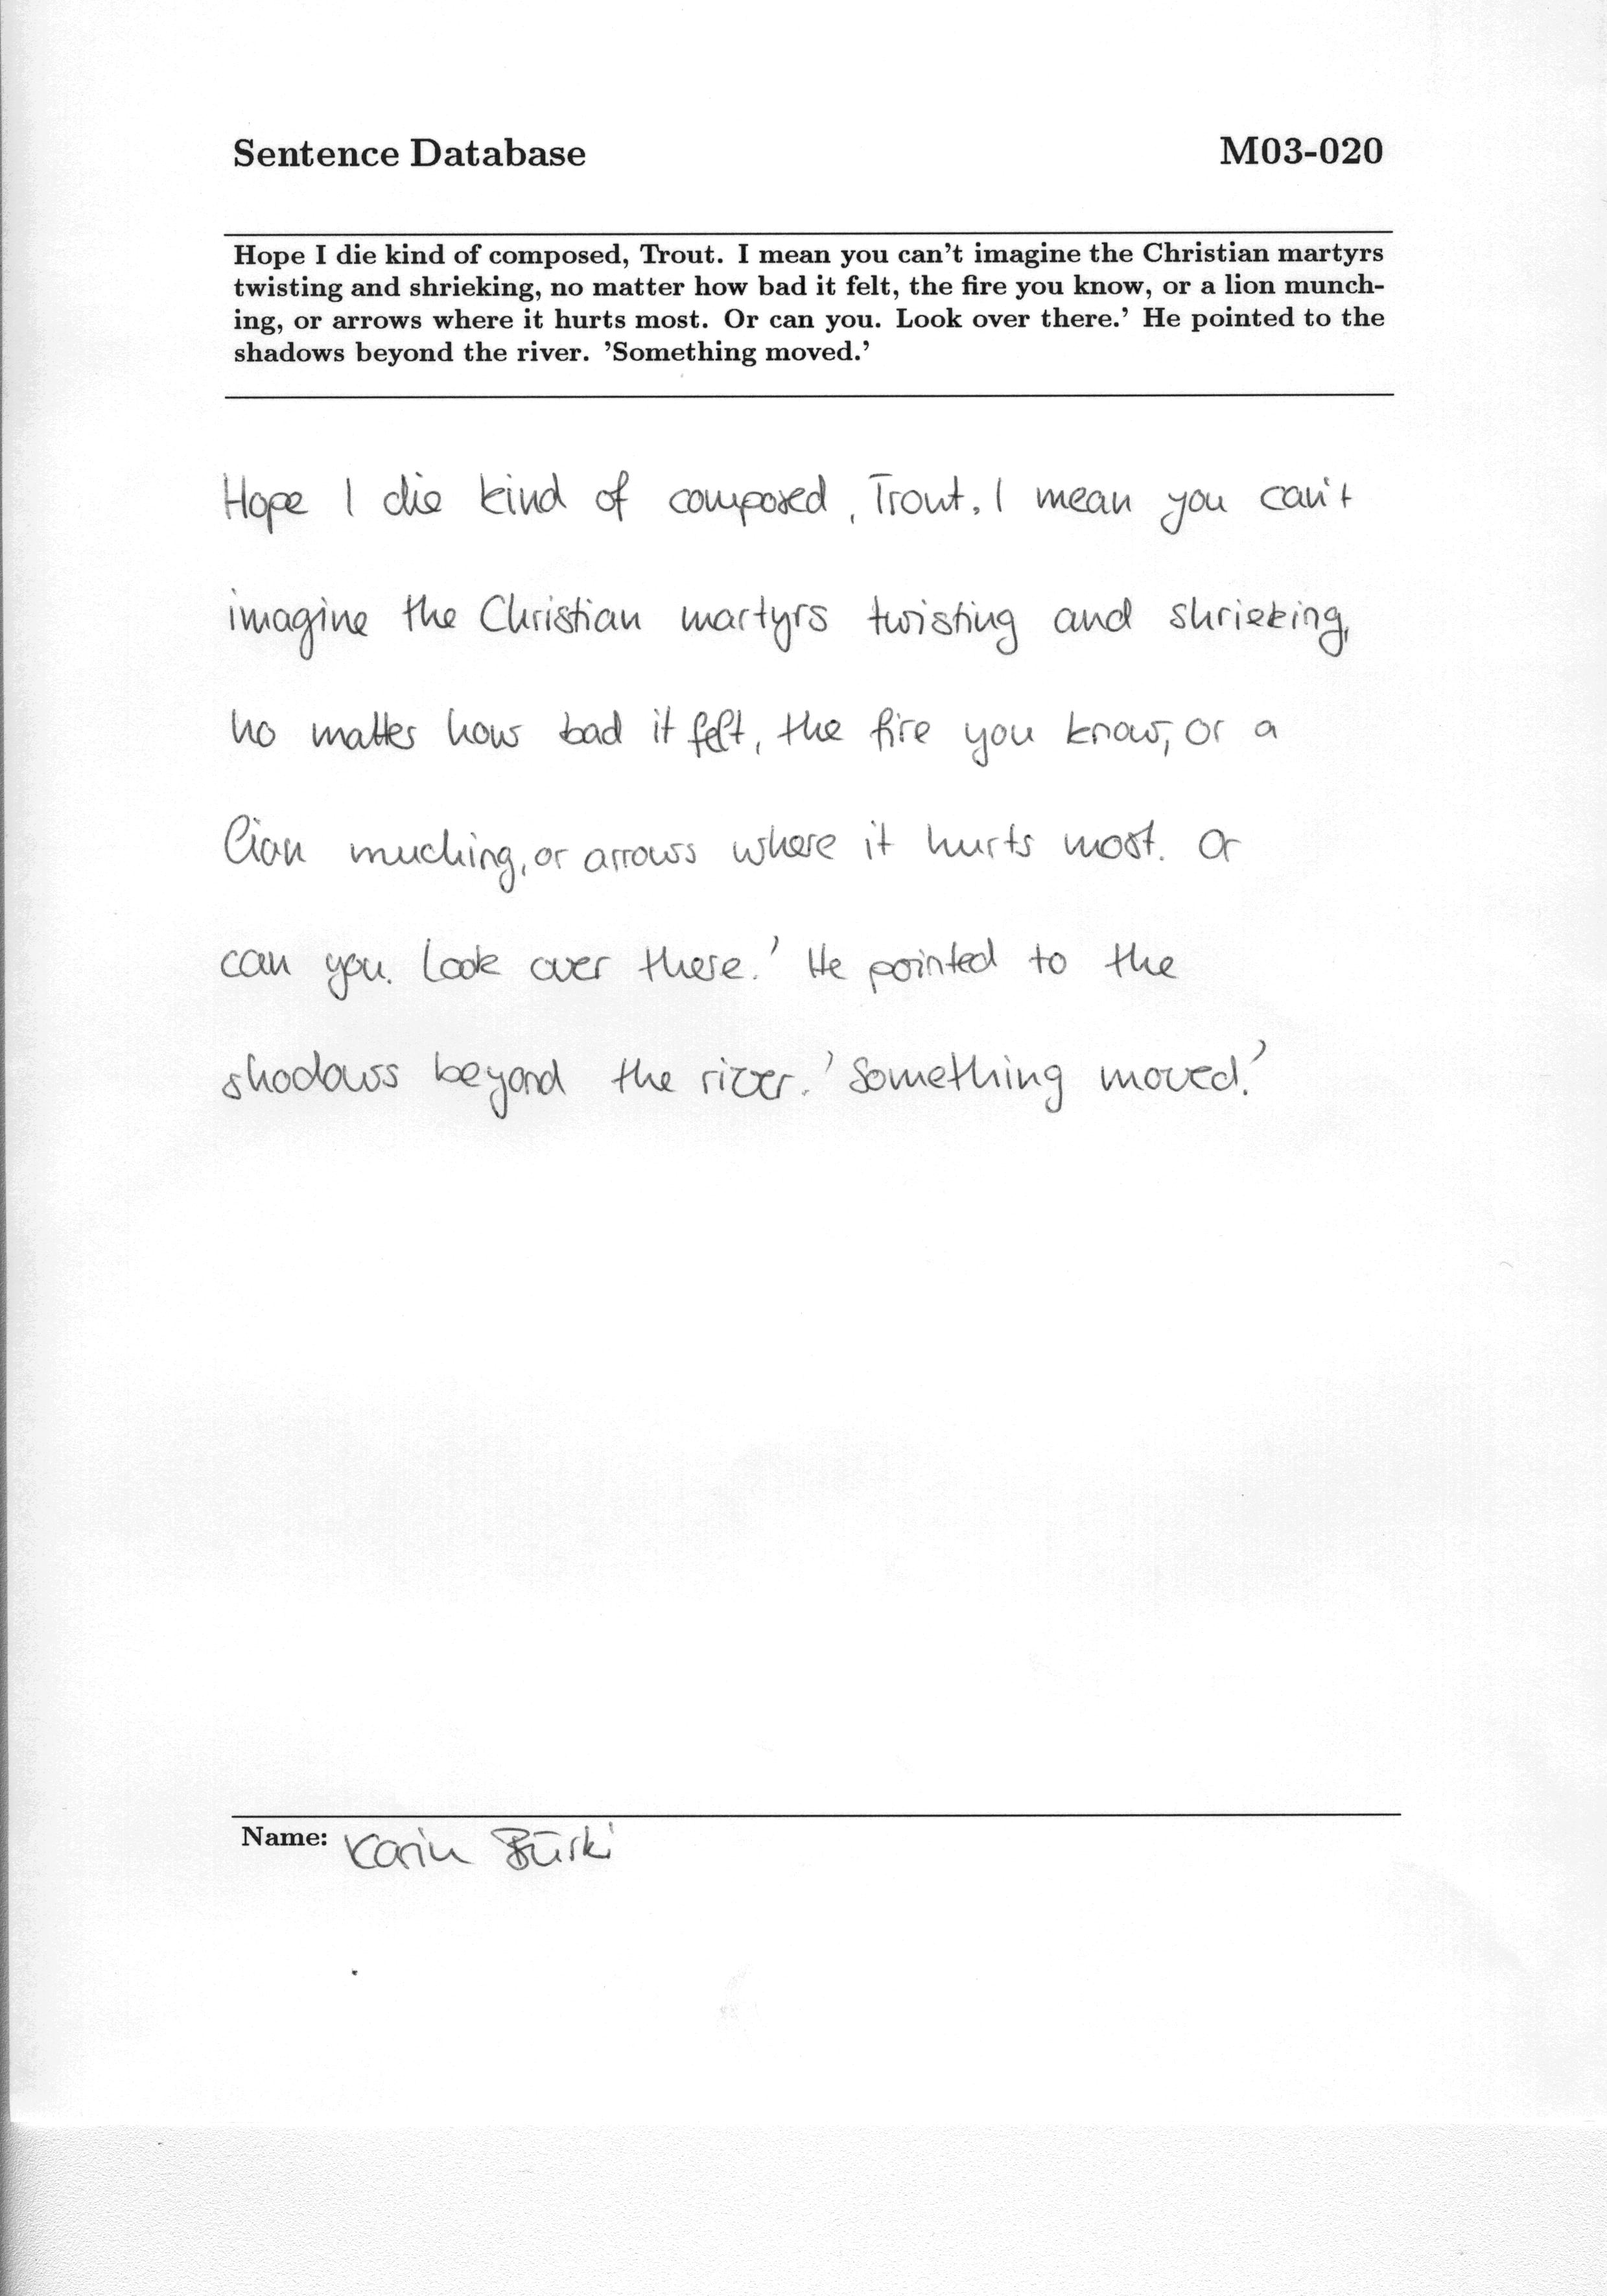 Sentence Database M03-020
Hope I die kind of composed, Trout. I mean you can't imagine the Christian martyrs
twisting and shrieking, no matter how bad it felt, the fire you know, or a lion munch-
ing, or arrows where it hurts most. Or can you. Look over there.' He pointed to the
shadows beyond the river. 'Something moved.'
Hope I die kind of composed, Trout. I mean you can't
imagine the Christian martyrs twisting and shrieking,
no matter how bad it felt, the fire you know, or a
lion muching, or arrows where it hurts most. Or
can you. Look over there.' He pointed to the
shodows beyond the river.' Something moved.'
Name: Karin Bürki